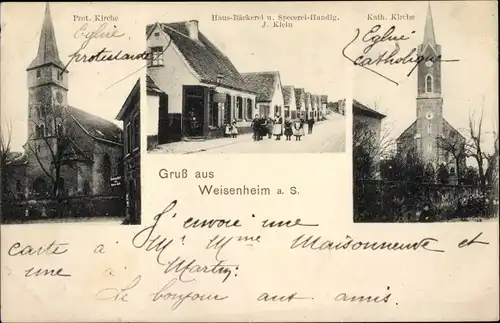 Prot. Kirche
Eglise
protestante
Haus-Bäckerei u. Specerei-Handlg.
J. Klein
Kath. Kirche
Eglise
catholique
Gruß aus
Weisenheim a. S.
J'envoie une
carte à M.r M.me Maisonneuve et
une Martin
le bonjour aux amis